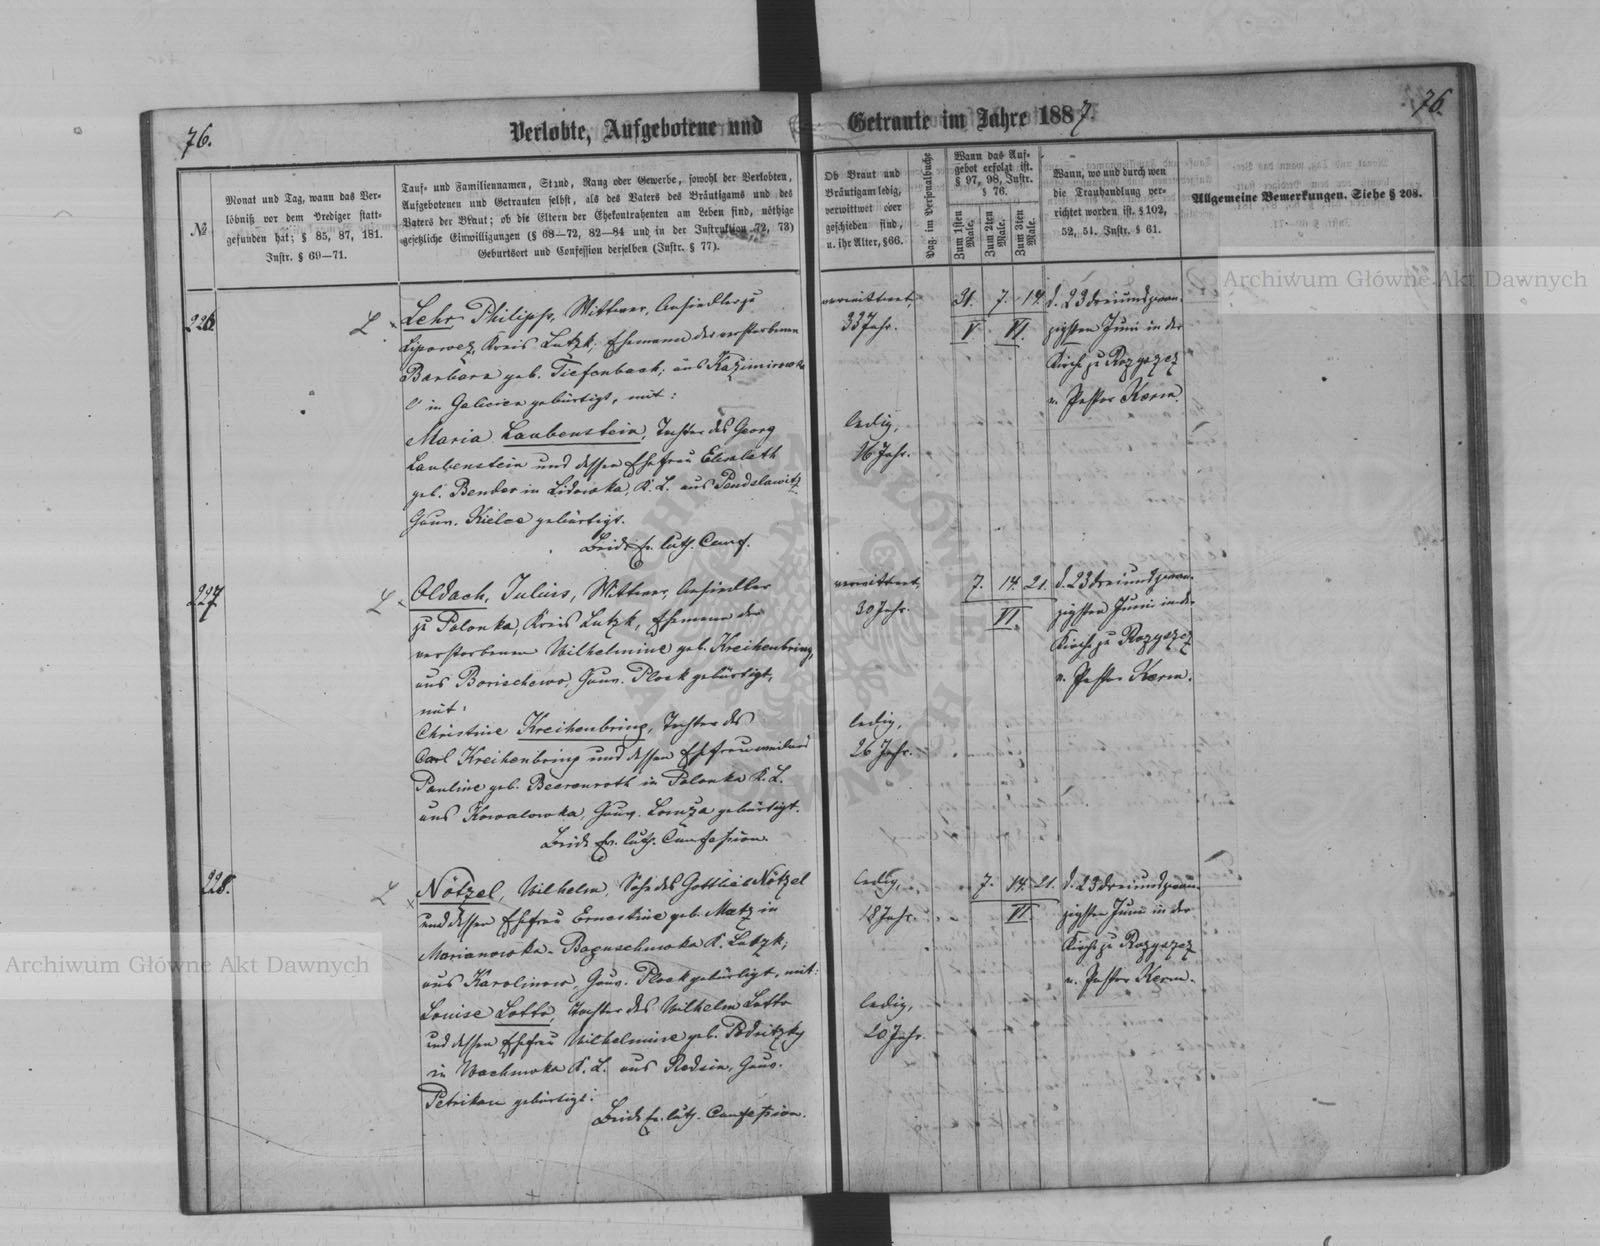 76.
Verlobte, Aufgebotene und
Getraute im Jahre 1887.
76.
№
Monat und Tag, wann das Ver-
löbniß vor dem Prediger statt-
gefunden hat; § 85, 87, 181.
Instr. § 69—71.
Tauf- und Familiennamen, Stand, Rang oder Gewerbe, sowohl der Verlobten,
Aufgebotenen und Getrauten selbst, als des Vaters des Bräutigams und des
Vaters der Braut; ob die Eltern der Ehekontrahenten am Leben sind, nöthige
gesetzliche Einwilligungen (§ 68—72, 82—84 und in der Instruktion 72, 73)
Geburtsort und Confession derselben (Instr. § 77).
Ob Braut und
Bräutigam ledig,
verwittwet oder
geschieden sind,
u. ihr Alter, § 66.
Pag. im Personalbuche
Wann das Auf-
gebot erfolgt ist.
§ 97, 98, Instr.
§ 76.
Zum 1sten Male.
Zum 2ten Male.
Zum 3ten Male.
Wann, wo und durch wen
die Trauhandlung ver-
richtet worden ist. § 102,
52, 51. Instr. § 61.
Allgemeine Bemerkungen. Siehe § 208.
226.
L.
Lehr Philipp, Wittwer, Ansiedler zu
Lipowez, Kreis Lutzk; Ehemann der verstorbenen
Barbara geb. Tiefenbach; aus Kazimirowka
in Galicien gebürtigt, mit:
Maria Laubenstein, Tochter des Georg
Laubenstein und dessen Ehefrau Elisabeth
geb. Bender in Lidowka, K. L. aus
Gouv. Kielce gebürtigt.
Beide ev. luth. Conf.
verwittwet,
33 Jahr.
ledig,
16 Jahr.
31. 7. 14.
V. VI.
d. 23 dreiundzwan-
zigsten Juni in der
Kirche zu Rozyszcz
v. Pastor Kerm.
227.
L.
Oldach, Julius, Wittwer, Ansiedler
zu Polonka, Kreis Lutzk, Ehemann der
verstorbenen Wilhelmine geb. Kreihenbring,
aus Borischewo, Gouv. Plock gebürtigt,
mit:
Christine Kreihenbring, Tochter des
Carl Kreihenbring und dessen Ehefrau weiland
Pauline geb. Beerenroth in Polonka K. L.
aus Kowalowka, Gouv. Lomza gebürtigt.
Beide ev. luth. Confession.
verwittwet,
30 Jahr.
ledig,
26 Jahr.
7. 14. 21.
VI.
d. 23 dreiundzwan-
zigsten Juni in der
Kirche zu Rozyszcz
v. Pastor Kerm.
228.
L
Nötzel, Wilhelm, Sohn des Gottlieb Nötzel
und dessen Ehefrau Ernestine geb. Matz in
Marianowka-Boguschowka K. Lutzk;
aus Karolinow, Gouv. Plock gebürtigt, mit:
Louise Lotto, Tochter des Wilhelm Lotto
und dessen Ehefrau Wilhelmine geb.
in K. L. aus Redsin, Gouv.
Petrikau gebürtigt:
Beide ev. luth. Confession.
ledig,
18 Jahr.
ledig,
20 Jahr.
7. 14. 21.
VI.
d. 23 dreiundzwan-
zigsten Juni in der
Kirche zu Rozyszcz
v. Pastor Kerm.
Archiwum Główne Akt Dawnych
Archiwum Główne Akt Dawnych